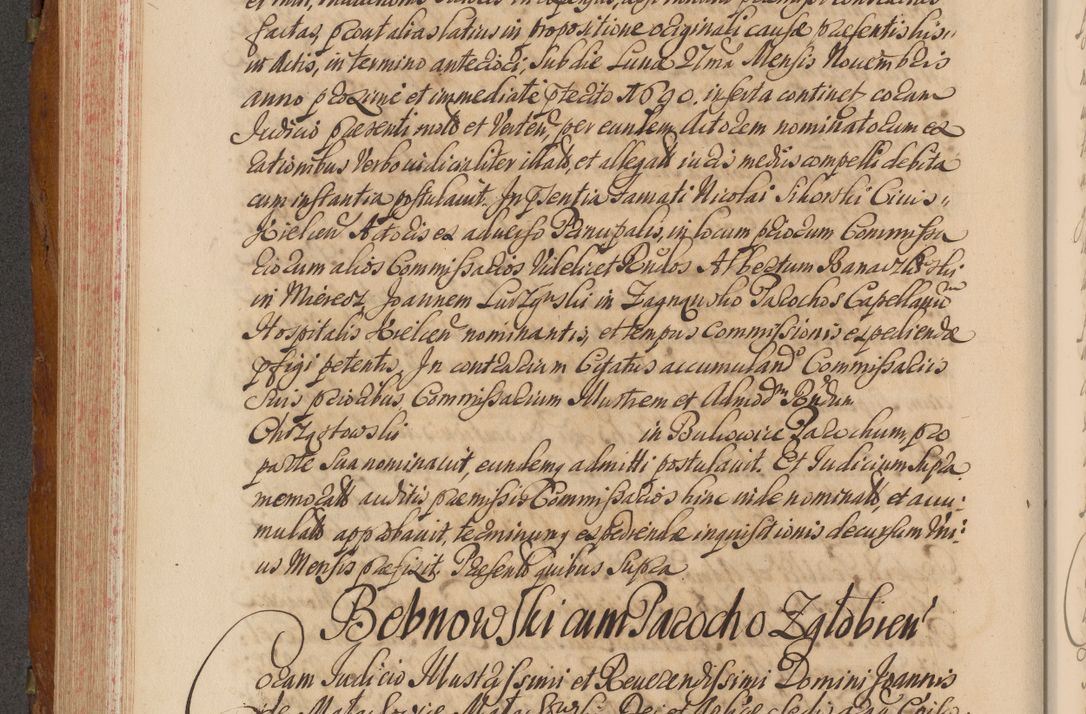 factas, prout alias latius in propositione originali causæ præsentis his„
in Actis, in termino anteriori, sub die Lunæ 27ma Mensis Novembris
anno proxime et immediate pterito 1690. inserta continet coram
Judicio præsenti mott et Verten, per eundem Actorem nominatorum ex
cationibus Verbo iudicialiter illatt, et allegatt iuris mediis compelli debita
cum instantia postulavit. In psentia famati Nicolai Sikorski Civis„
Kielcen Actoris ex adverso Principalis, in locum priorum Commissa
riorum alios Commissarios Videlicet Rndos Albertum Banarzki
in Mieresz Joannem Lurzynski in Zagnansko Parochos Capellanum
Hospitalis Kielcen nominantis, et tempus Commissionis expediendæ
pfigi petentis, In contrarium Citatus accumulando Commissariis
suis prioribus Commissarium Illustrem et Admodm Rndum
Chrząstowski in Bukowice Parochum, pro
parte sua nominavit, eundemq admitti postulavit. Et Judicium supra
memoratt auditis præmissis Commissarios hinc inde nominatt, et accu:
mulatt approbavit, terminumq expediendæ inquisitionis decursum Uni:
us Mensis præfixit. Præsentt quibus supra.
Bebnowski cum Parocho Zglobien
Coram Judicio Illustrissimi et Reverendissimi Domini Joannis